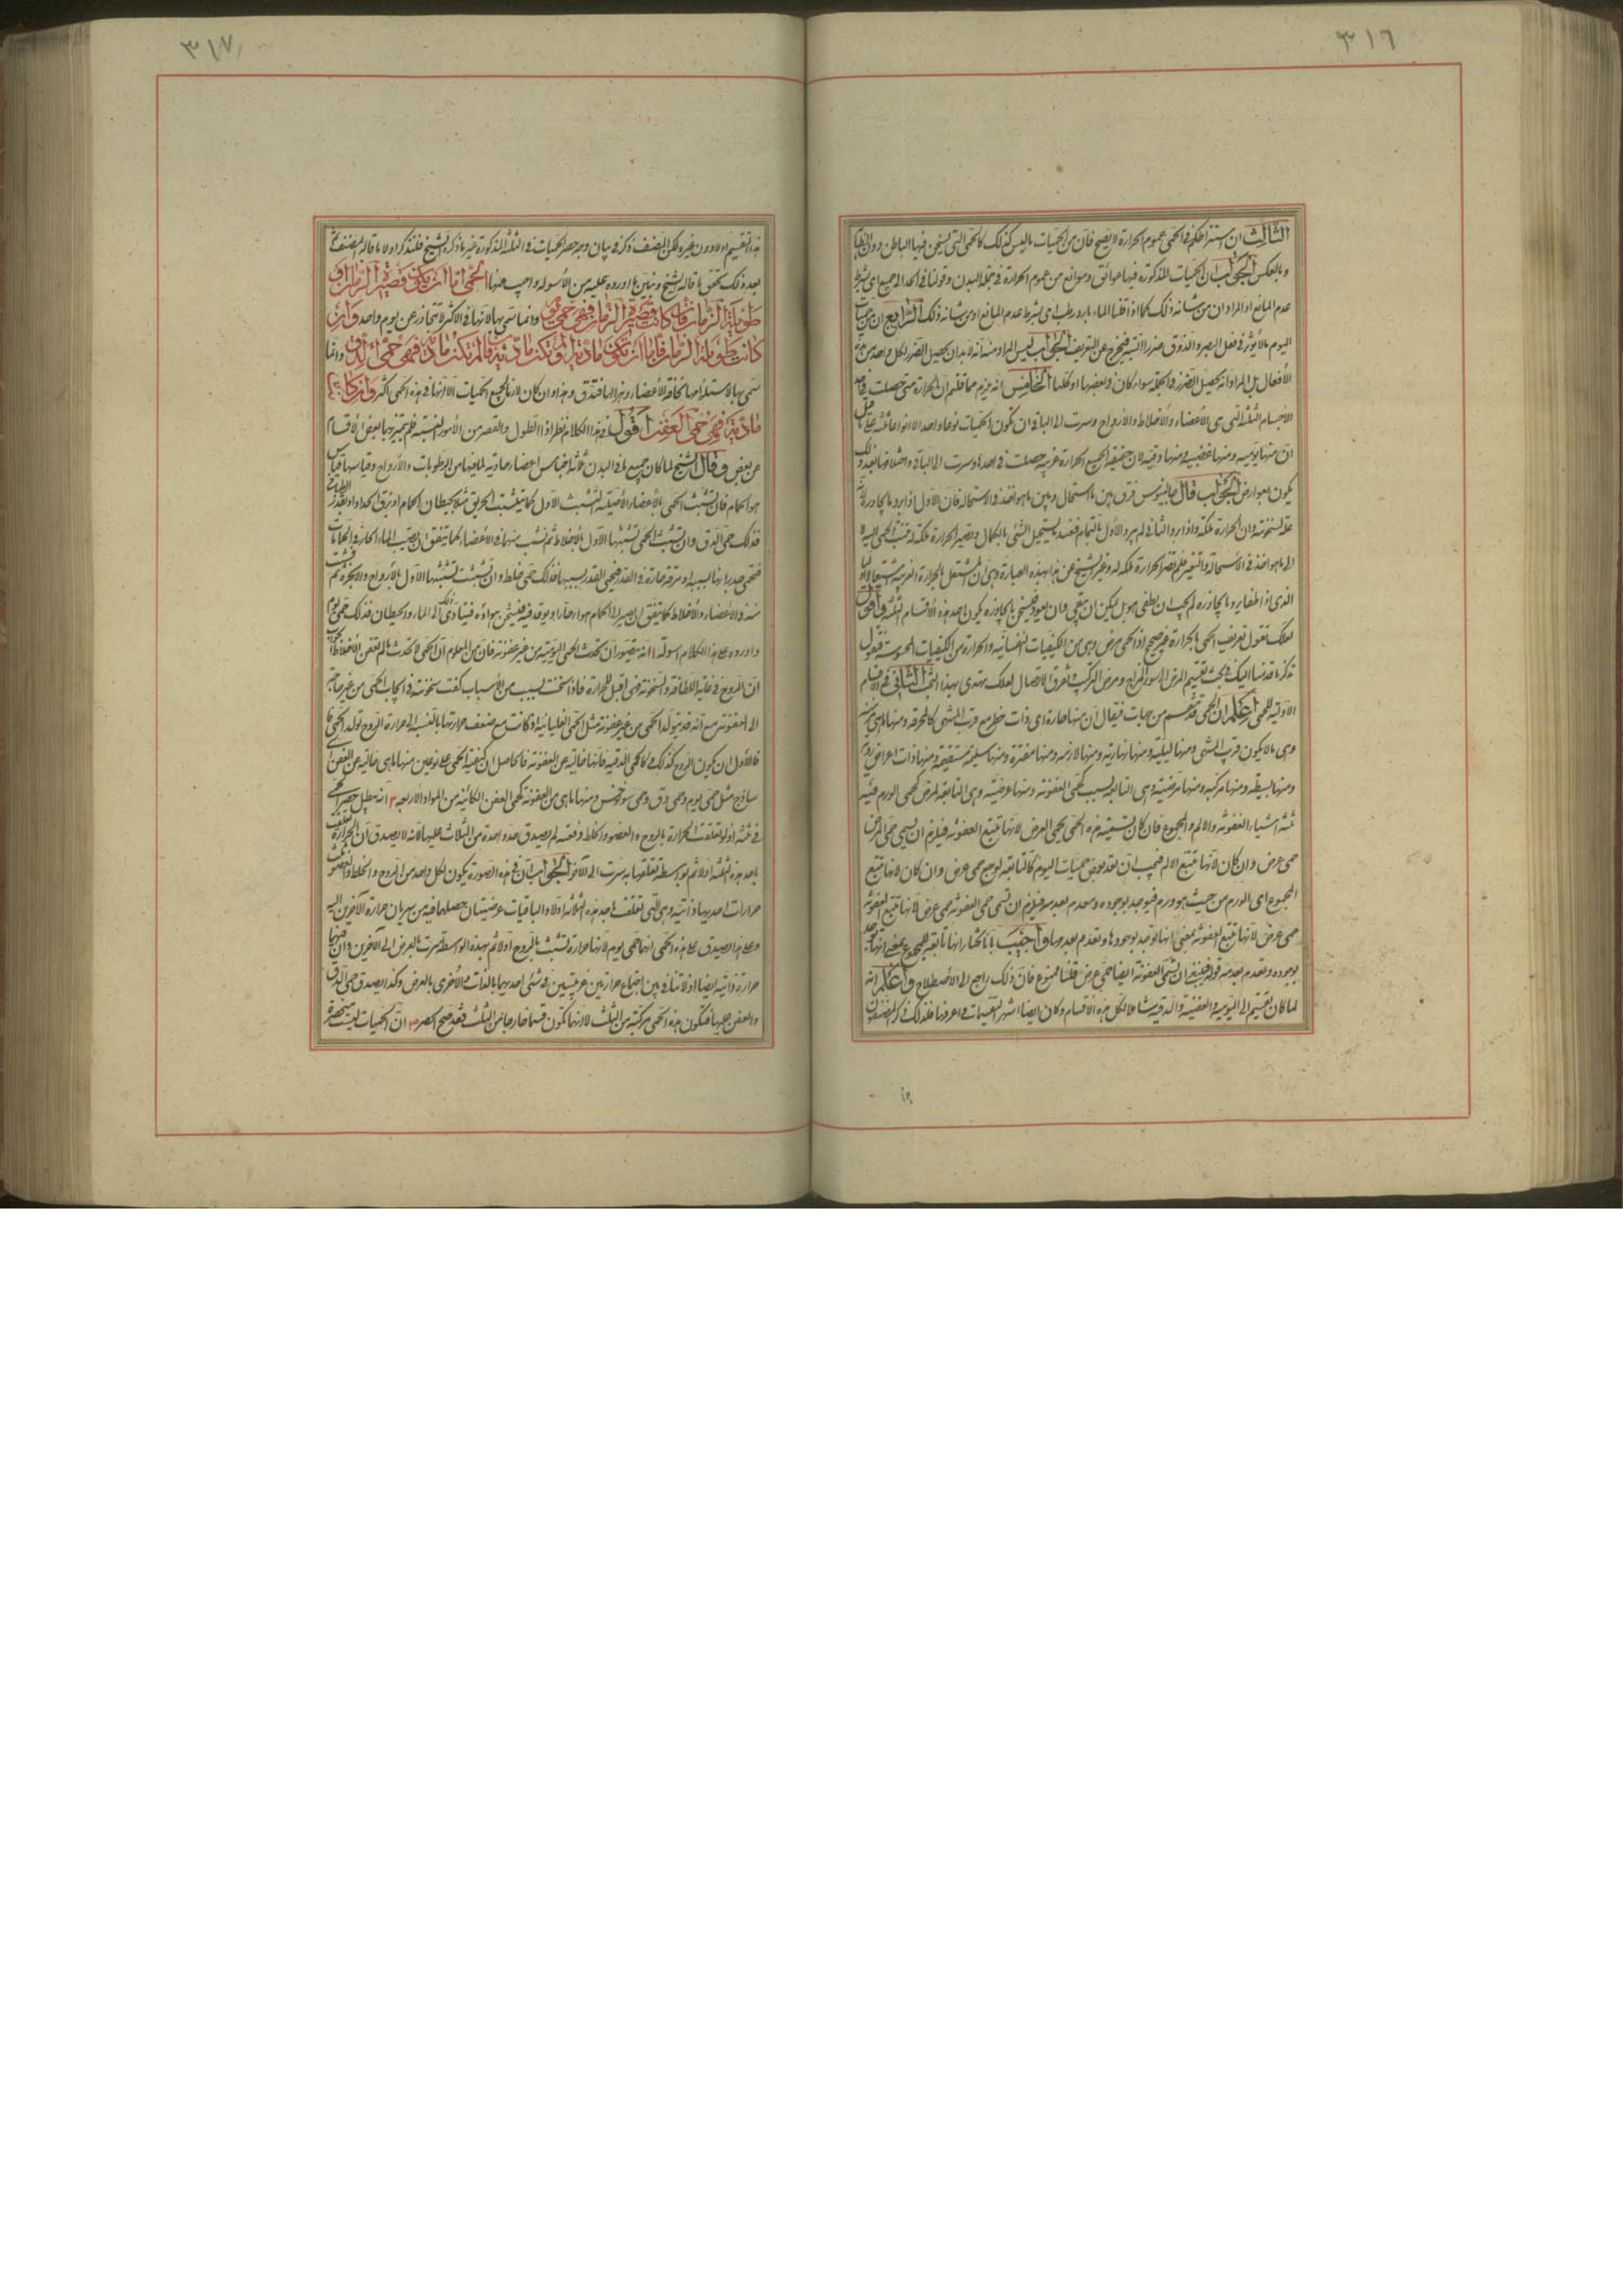 ٣١٦
الثالث ان اشتراطكم في الحمى عموم الحرارة لا يصح فان من الحميات ما ليس كذلك كالحمى التي يسخن فيها الباطن دون الظاهر
وبالعكس الجواب ان الحميات المذكورة فيها عوائق وموانع من عموم الحرارة في جملة البدن وقولنا في الحد الى جميع اي بشرط
عدم المانع او المراد ان من شانه ذلك كما اذا قلنا الماء بارد رطب اي بشرط عدم المانع او من شانه ذلك الرابع ان من حميات
اليوم ما لا يؤثر في فعل البصر والذوق ضررا البتة فيخرج عن التعريف الجواب ليس المراد منه انه لا بد ان يحصل الضرر لكل واحد من
الأفعال بل المراد انه يحصل الضرر في الجملة سواء كان في بعضها او كلها الخامس انه يلزم مما قلتم ان الحرارة متى حصلت في احد
الاجسام الثلثة التي هي الاعضاء والأخلاط والأرواح وسرت الى الباقي ان تكون الحميات نوعا واحدا لا انواعا ثلثة على
ان منها يومية ومنها عفنية ومنها دقية لان حقيقة الجميع الحرارة غريبة حصلت في احدها وسرت الى الباقي واختلافها بعد ذلك
يكون بعوارض الجواب قال جالينوس فرق بين ما استحال وبين ما هو آخذ في الاستحالة فان الأول اذا برد ما يجاوره
الى ما هو آخذ في الأستحالة والتغير فلم تصر الحرارة ملكة له وعبر الشيخ عن هذا بهذه العبارة وهي ان المشتعل بالحرارة الغريبة اشتعالا اوليا
الذي اذا طفئ او برد ما يجاوره لم يجب ان يطفى هو بل يمكن ان يبقى وان يعود فيسخن ما يجاوره يكون احد هذه الأقسام الثلثة واقول
لعلك تقول تعريف الحمى بالحرارة غير صحيح اذ الحمى مرض وهي من الكيفيات النفسانية والحرارة من الكيفيات المحسوسة فنقول
تذكر ما قدمنا اليك في بحث تقسيم المرض الى سوء المزاج ومرض التركيب وتفرق الاتصال لعلك تهتدي بهذا البحث الثاني في الأقسام
الأولية للحمى اعلم ان الحمى قد تقسم من جهات فيقال ان منها حارة اي ذات خطر مع قرب المنتهى كالمحرقة ومنها ما هي مزمنة
وهي ما لا يكون قرب المنتهى ومنها ليلية ومنها نهارية ومنها لازمة ومنها مفترة ومنها سليمة مستقيمة ومنها ذات اعراض ردية
ومنها بسيطة ومنها مركبة ومنها مرضية وهي التابعة لسبب كحمى العفونة ومنها عرضية وهي التابعة لمرض كحمى الورم ففيه
ثلثة اشياء العفونة والالم والمجموع فان كان تسمية هذه الحمى بحمى العرض لانها تتبع العفونة فيلزم ان يسمى حمى المرض
حمى عرض وان كان لأنها تتبع الالم فيجب ان تعد بعض حميات اليوم كالتابعة لوجع حمى عرض وان كان لانها تتبع
المجموع اي الورم من حيث هو ورم فيوجد بوجوده وينعدم بعدمه فيلزم ان تسمى حمى العفونة حمى عرض لانها تتبع العفونة
حمى عرض لانها تتبع العفونة بمعنى انها توجد بوجودها وتعدم بعدمها واجيب بانا نختار انها تابعة للمجموع بمعنى انها توجد
بوجوده وتعدم بعدمه قوله فينبغي ان تسمى العفونة ايضا حمى عرض قلنا ممنوع فان ذلك راجع الى الأصطلاح واعلم انه
لما كان تقسيم الى اليومية والعفنية والدقية شاملا لكل هذه الأقسام وكان ايضا اشهر التقسيمات واعرفها فلذلك ذكر المصنفون
٣١٧
هذا التقسيم اولا دون غيره ولكن المصنف ذكر في بيان وجه حصر الحميات في الثلثة المذكورة غير ما ذكره الشيخ فلنذكر اولا ما قاله المصنف ثم
بعد ذلك نحقق ما قاله الشيخ ونبين ما اوردوه عليه من الأسولة واجيب عنها الحمى اما ان تكون قصيرة الزمان او
طويلة الزمان فان كانت قصيرة الزمان فهي حمى يوم وانما سمي بها لانها في الاكثر لا تتجاوز عن يوم واحد وان
كانت طويلة الزمان فاما ان تكون مادية او لا تكون مادية فان لم تكن مادية فهي حمى الدق وانما
سمي بها لاستلزامها نحافة الأعضاء وهزالها فتدق وهذا وان كان لازما لجميع الحميات الا انها في هذه الحمى اكثر وان كانت
مادية فهي حمى العفن اقول في هذا الكلام نظر اذ الطول والقصر من الأمور النسبية فلم يتميز بها بعض الأقسام
عن بعض وقال الشيخ لما كان جميع ما في البدن ثلثة اجناس اعضاء حاوية لما فيها من الرطوبات والأرواح وقياسها قياس
هواء الحمام فان تشبث الحمى بالأعضاء الأصلية التشبث الأول كما يتشبث الحريق مثلا بحيطان الحمام او بزق الحداد او بقدر الطباخ
فذلك حمى الدق وان تشبث الحمى تشبثها الأول بالأخلاط ثم تشبث منها في الأعضاء كما يتفق ان يصيب الماء الحار في الحمام
فتحمى جدرانها بسببه او مرقة حارة في القدر فيحمى القدر بسببها فذلك حمى خلط وان تشبثت تشبثها الأول بالأرواح والابخرة ثم فشت
منه في الاعضاء والأخلاط كما يتفق ان يصير الى الحمام هواء حار او يوقد فيه فيسخن هواؤه فيتادى ذلك الى الماء والحيطان فذلك حمى يوم
واوردوه على هذا الكلام اسولة ١ انه يتصور ان تحدث الحمى اليومية من غير عفونة فان من المعلوم ان الحمى لا تحدث ما لم تعفن الاخلاط الجواب
ان الروح في غاية اللطافة والسخونة فهي اقبل للحرارة فاذا سخنت بسبب من الأسباب كفت سخونته في ايجاب الحمى من غير حاجة
الى العفونة مع انه قد يتولد الحمى من غير عفونة مثل الحمى الغليانية واذا كانت مع ضعف حرارتها بالنسبة الى حرارة الروح تولد الحمى
فالأولى ان يكون الروح كذلك وكالحمى الدقية فانها خالية عن العفونة فالحاصل ان كيفية الحمى على نوعين منها ما هي خالية عن العفن
ساذج مثل حمى يوم وحمى دق وحمى سونوخس ومنها ما هي من العفونة كحمى العفن الكائنة من المواد الاربعة ٢ انه يبطل حصر الحمى
في ثلثة اذ لو تعلقت الحرارة بالروح والعضو والخلط دفعة لم يصدق حد واحدة من الثلاث عليها لأنه لا يصدق ان الحرارة تعلقت
باحد هذه الثلثة اولا ثم بواسطة تعلقها به سرت الى الآخر الجواب ان في هذه الصورة يكون لكل واحد من الروح والخلط والعضو ثلث
حرارات احديها ذاتية وهي التي تعلقت باحد هذه الثلاثة اولا والباقيات عرضيتان حصلها فيه من سريان حرارة الآخرين اليه
وعلى هذا يصدق على هذه الحمى انها حمى يوم لأنها حرارة تشبث بالروح اولا ثم بهذه الواسطة سرت بالعرض الى الآخرين وان
حرارة ذاتية ايضا اذ لا تنافي بين اجتماع حرارتين غريبتين في شئ احديهما بالذات والأخرى بالعرض وكذا يصدق حمى الدق
والعفن عليها فتكون هذه الحمى مركبة من الثلث لا انها تكون قسما خارجا من الثلث فقد صح الحصر ٣ ان الحميات ليست منحصرة